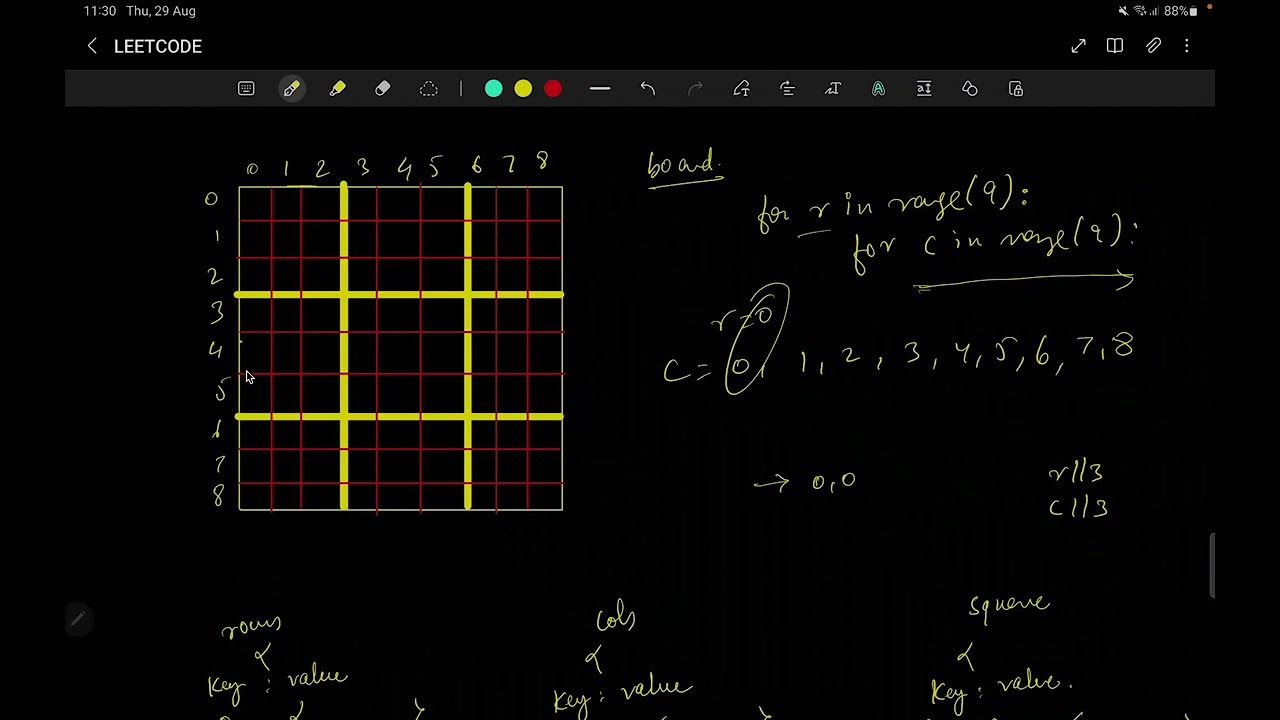 11:30 Thu, 29 Aug 88%
LEETCODE
0 1 2 3 4 5 6 7 8
0
1
2
3
4
5
6
7
8
board.
for r in range(9):
for c in range(9):
r=0
c = 0, 1, 2, 3, 4, 5, 6, 7, 8
→ 0,0
r//3
c//3
rows
{
key: value
cols
{
key: value
square
{
key: value.